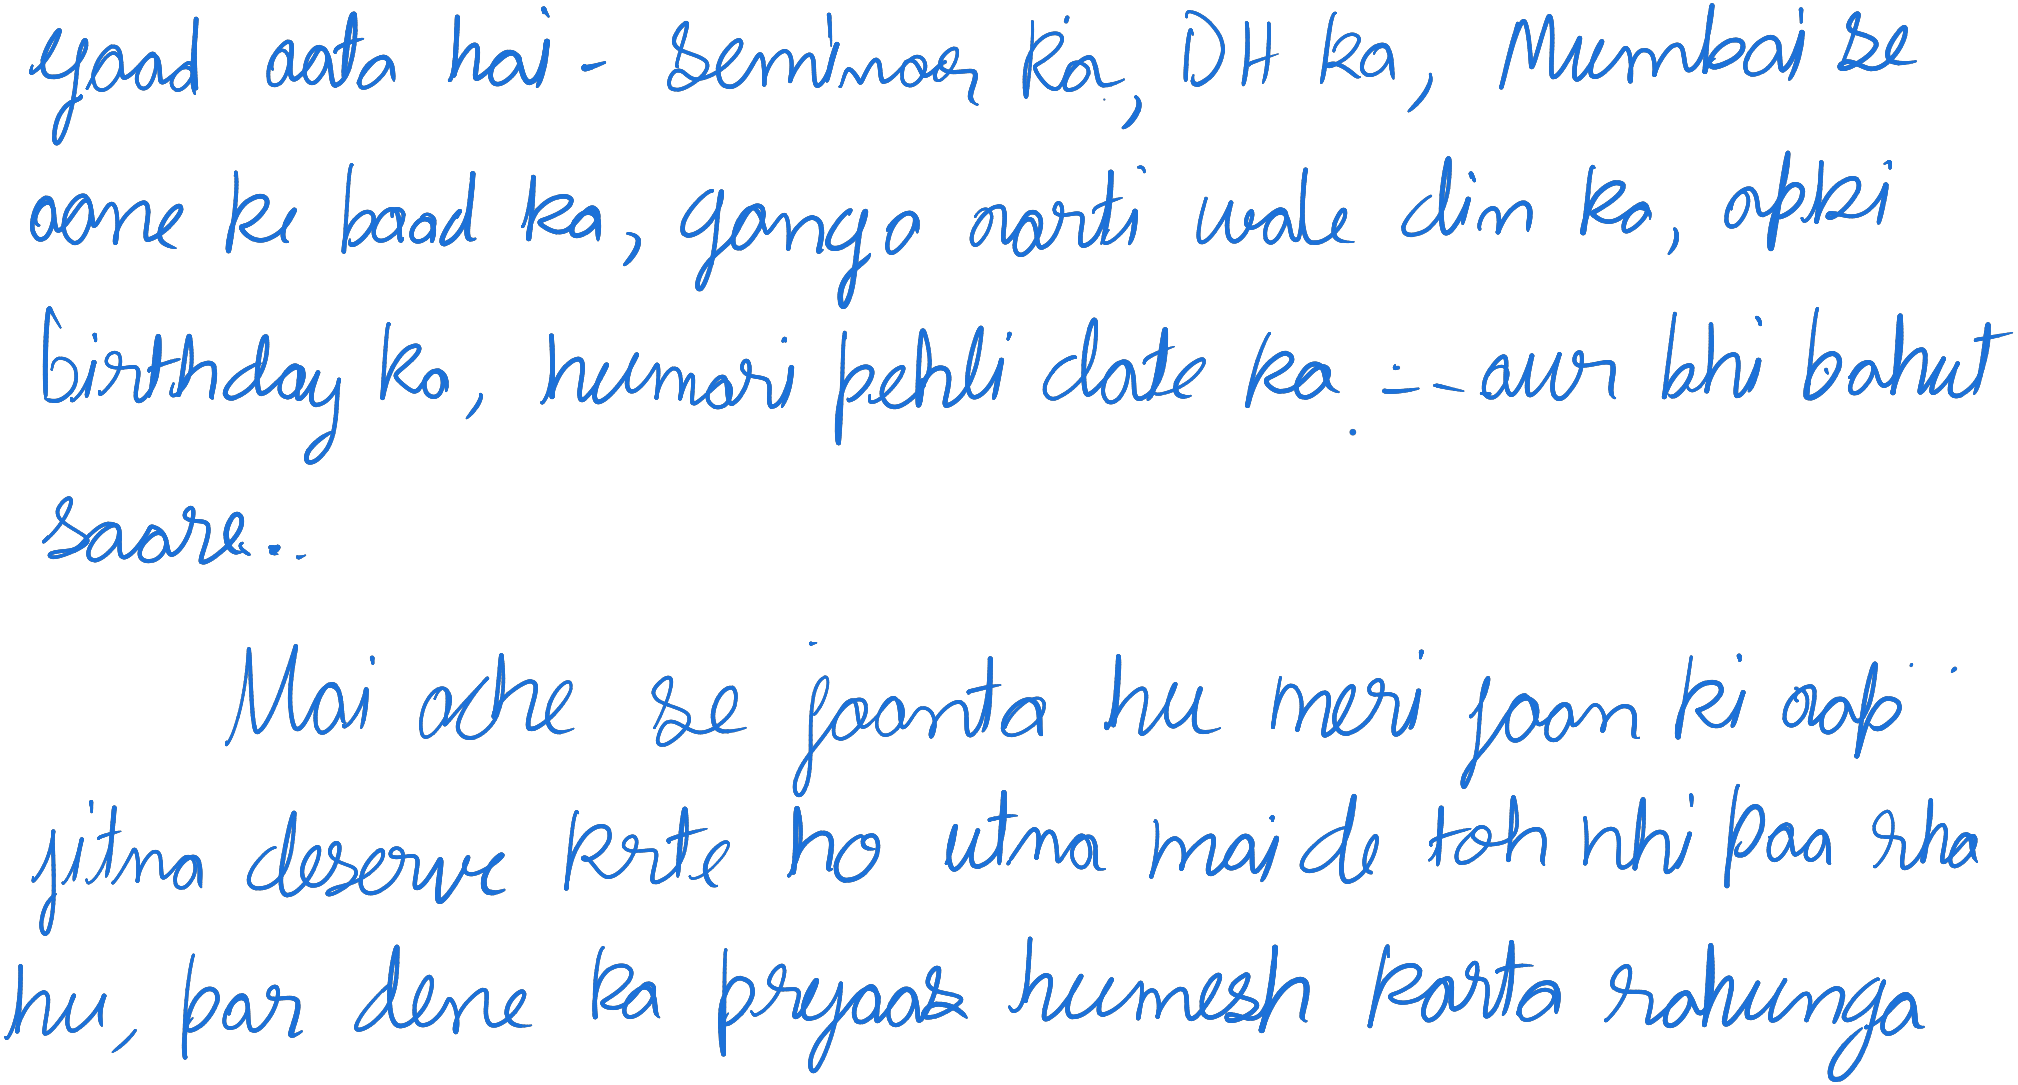 yaad aata hai - seminar ka, DH ka, Mumbai se
aane ke baad ka, ganga aarti wale din ka, apki
birthday ka, humari pehli date ka -- aur bhi bahut
saare..
Mai ache se jaanta hu meri jaan ki aap
jitna deserve krte ho utna mai de toh nhi paa rha
hu, par dene ka pryaas humesh karta rahunga